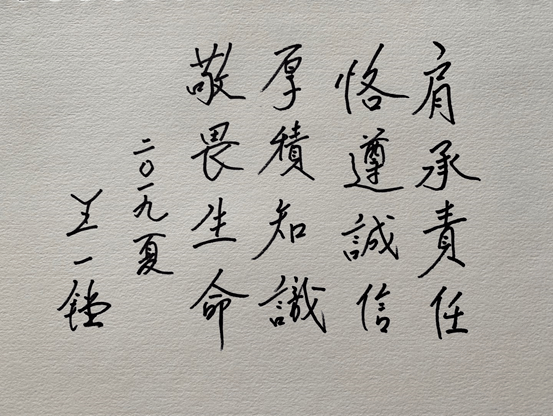 肩承責任
恪遵誠信
厚積知識
敬畏生命
二〇一九夏
一鏜